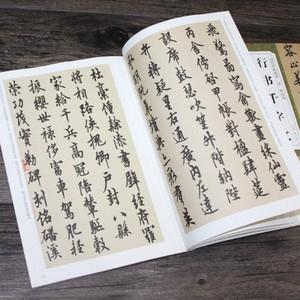 飛驚圖寫禽獸畫彩仙靈
丙舍傍啓甲帳對楹肆筵
設席鼓瑟吹笙升階納陛
弁轉疑星右通廣內左達
杜稾鍾隸漆書壁經府羅
將相路俠槐卿戶封八縣
家給千兵高冠陪輦驅轂
振纓世祿侈富車駕肥輕
策功茂實勒碑刻銘磻溪
行书千字